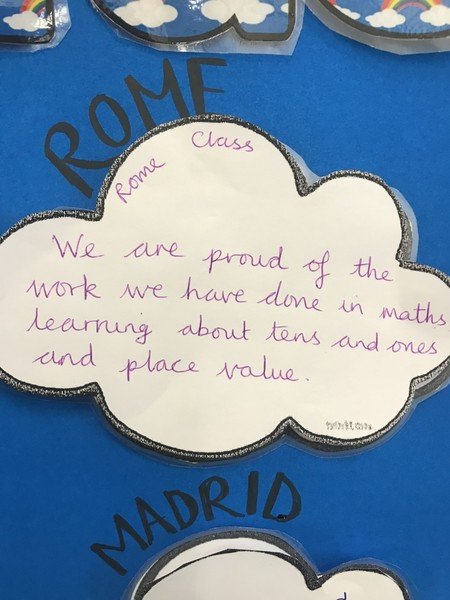 ROME
Rome Class
We are proud of the
work we have done in maths
learning about tens and ones
and place value.
MADRID